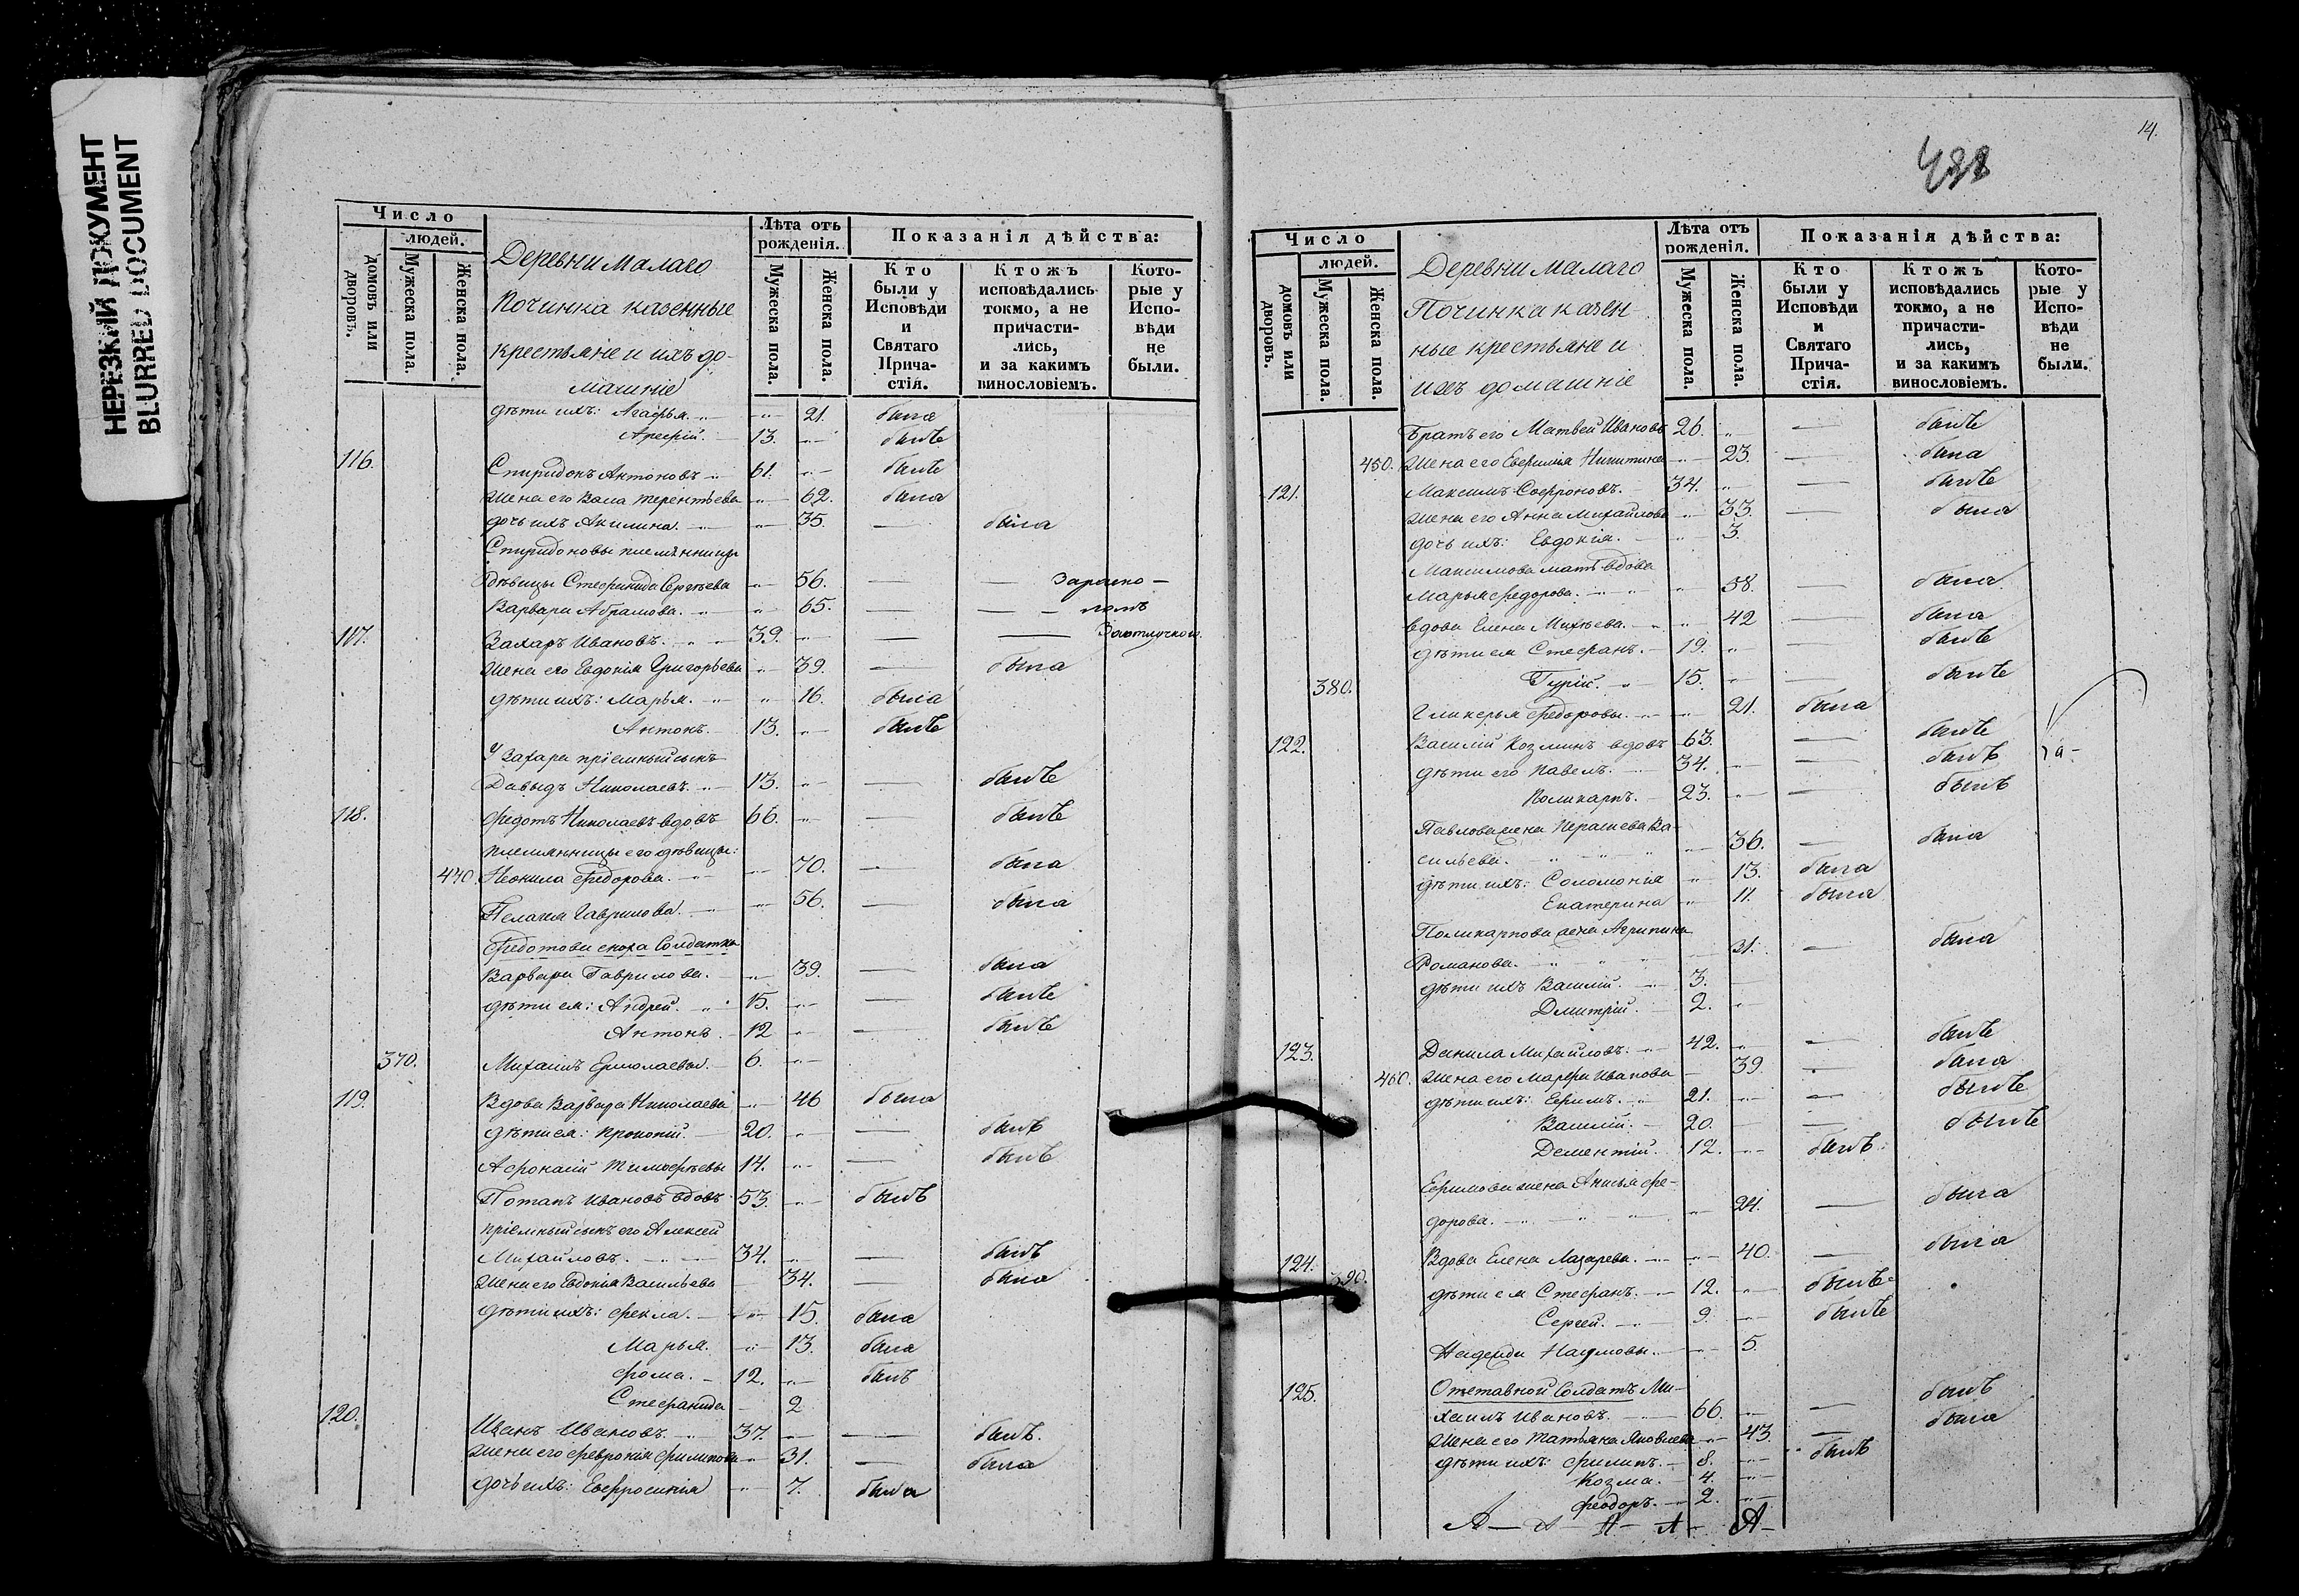 НЕРЕЗКИЙ ДОКУМЕНТ
BLURRED DOCUMENT
Число
людей.
домовъ или дворовъ.
Мужеска пола.
Женска пола.
Деревни Малаго
Починка казенные
крестьяне и ихъ до-
машніе
Лѣта отъ рожденія.
Мужеска пола.
Женска пола.
Показанія дѣйства:
Кто были у Исповѣди и Святаго Прича-стія.
Ктожъ исповѣдались токмо, а не причасти-лись, и за какимъ винословіемъ.
Кото-рые у Испо-вѣди не были.
дѣти ихъ: Агафья. 21. была
Арефій. 13. былъ
116. Спиридонъ Антоновъ 61. былъ
жена его Васа Терентьева 62. была
дочь ихъ Акилина. 35. — была
Спиридоновы племянницы
дѣвицы Стефанида Сергѣева 56. — —
Варвара Абрамова. 65. — —
117. Захаръ Ивановъ. 39. — — За отлучкою
жена его Евдокія Григорьева 39. — была
дѣти ихъ: Марья. 16. была
Антонъ. 13. былъ
У Захара пріемный сынъ
Давыдъ Николаевъ. 13. — былъ
118. Федотъ Николаевъ вдовъ 66. — былъ
племянницы его дѣвицы:
440. Неонила Федорова. 70. — была
Пелагея Гаврилова. 56. — была
Федотова сноха Солдатка
Варвара Гаврилова. 39. — была
дѣти ея: Андрей. 15. — былъ
Антонъ. 12 — былъ
370. Михаилъ Ермолаевы. 6.
119. Вдова Варвара Николаева 46 была
дѣти ея: Прокопій. 20. — былъ
Афонасій Тимофѣевы 14. — былъ
Потапъ Ивановъ вдовъ 53. былъ
пріемный сынъ его Алексей
Михайловъ. 34. — былъ
жена его Евдокія Васильева 34. — была
дѣти ихъ: Фекла. 15. была
Марья. 13. была
Фома. 12. былъ
Стефанида 2
120. Иванъ Ивановъ. 37. — былъ.
жена его Феврония Филипова 31. — была
дочь ихъ: Евфросинія 7. была
14.
488
Число
людей.
домовъ или дворовъ.
Мужеска пола.
Женска пола.
Деревни Малаго
Починка казен
ные крестьяне и
ихъ домашніе
Лѣта отъ рожденія.
Мужеска пола.
Женска пола.
Показанія дѣйства:
Кто были у Исповѣди и Святаго Прича-стія.
Ктожъ исповѣдались токмо, а не причасти-лись, и за какимъ винословіемъ.
Кото-рые у Испо-вѣди не были.
Братъ его Матвей Ивановъ 26. — былъ
450. жена его Евфимія Никитина 23. — была
121. Максимъ Софроновъ. 34. — былъ
жена его Анна Михайлова 33. — была
дочь ихъ: Евдокія. 3.
Максимова мать вдова
Марья Федорова. 58. — была
вдова Елена Михѣева. 42 — была
дѣти ея Стефанъ. 19. — былъ
380. Гурій. 15. — былъ
Гликерья Федоровы. 21. была
122. Василій Козминъ вдовъ 63. — былъ
дѣти его Павелъ. 34. — былъ
Поликарпъ. 23. — былъ
Павлова жена Ва-
сильева. 36. — была
дѣти ихъ: Соломонія 13. была
Екатерина 11. была
Поликарпова жена Агрипина
Романова. 31. — была
дѣти ихъ Василій. 3.
Дмитрій. 2.
123. Данила Михайловъ. 42. — былъ
460. жена его Марфа Иванова 39. была
дѣти ихъ: Ефимъ. 21. — былъ
Василій. 20. — былъ
Дементій. 12. былъ
Ефимова жена Анисья Фе-
дорова. 24. — была
124. Вдова Елена Лазарева. 40. — была
390. дѣти ея Стефанъ. 12. былъ
Сергей. 9. былъ
Надежда Наумовы. 5.
125. Отставной Солдатъ Ми-
хаилъ Ивановъ. 66. — былъ
жена его Татьяна Яковлева 43. — была
дѣти ихъ: Филипъ. 8. былъ
Козма. 4.
Феодоръ. 2.